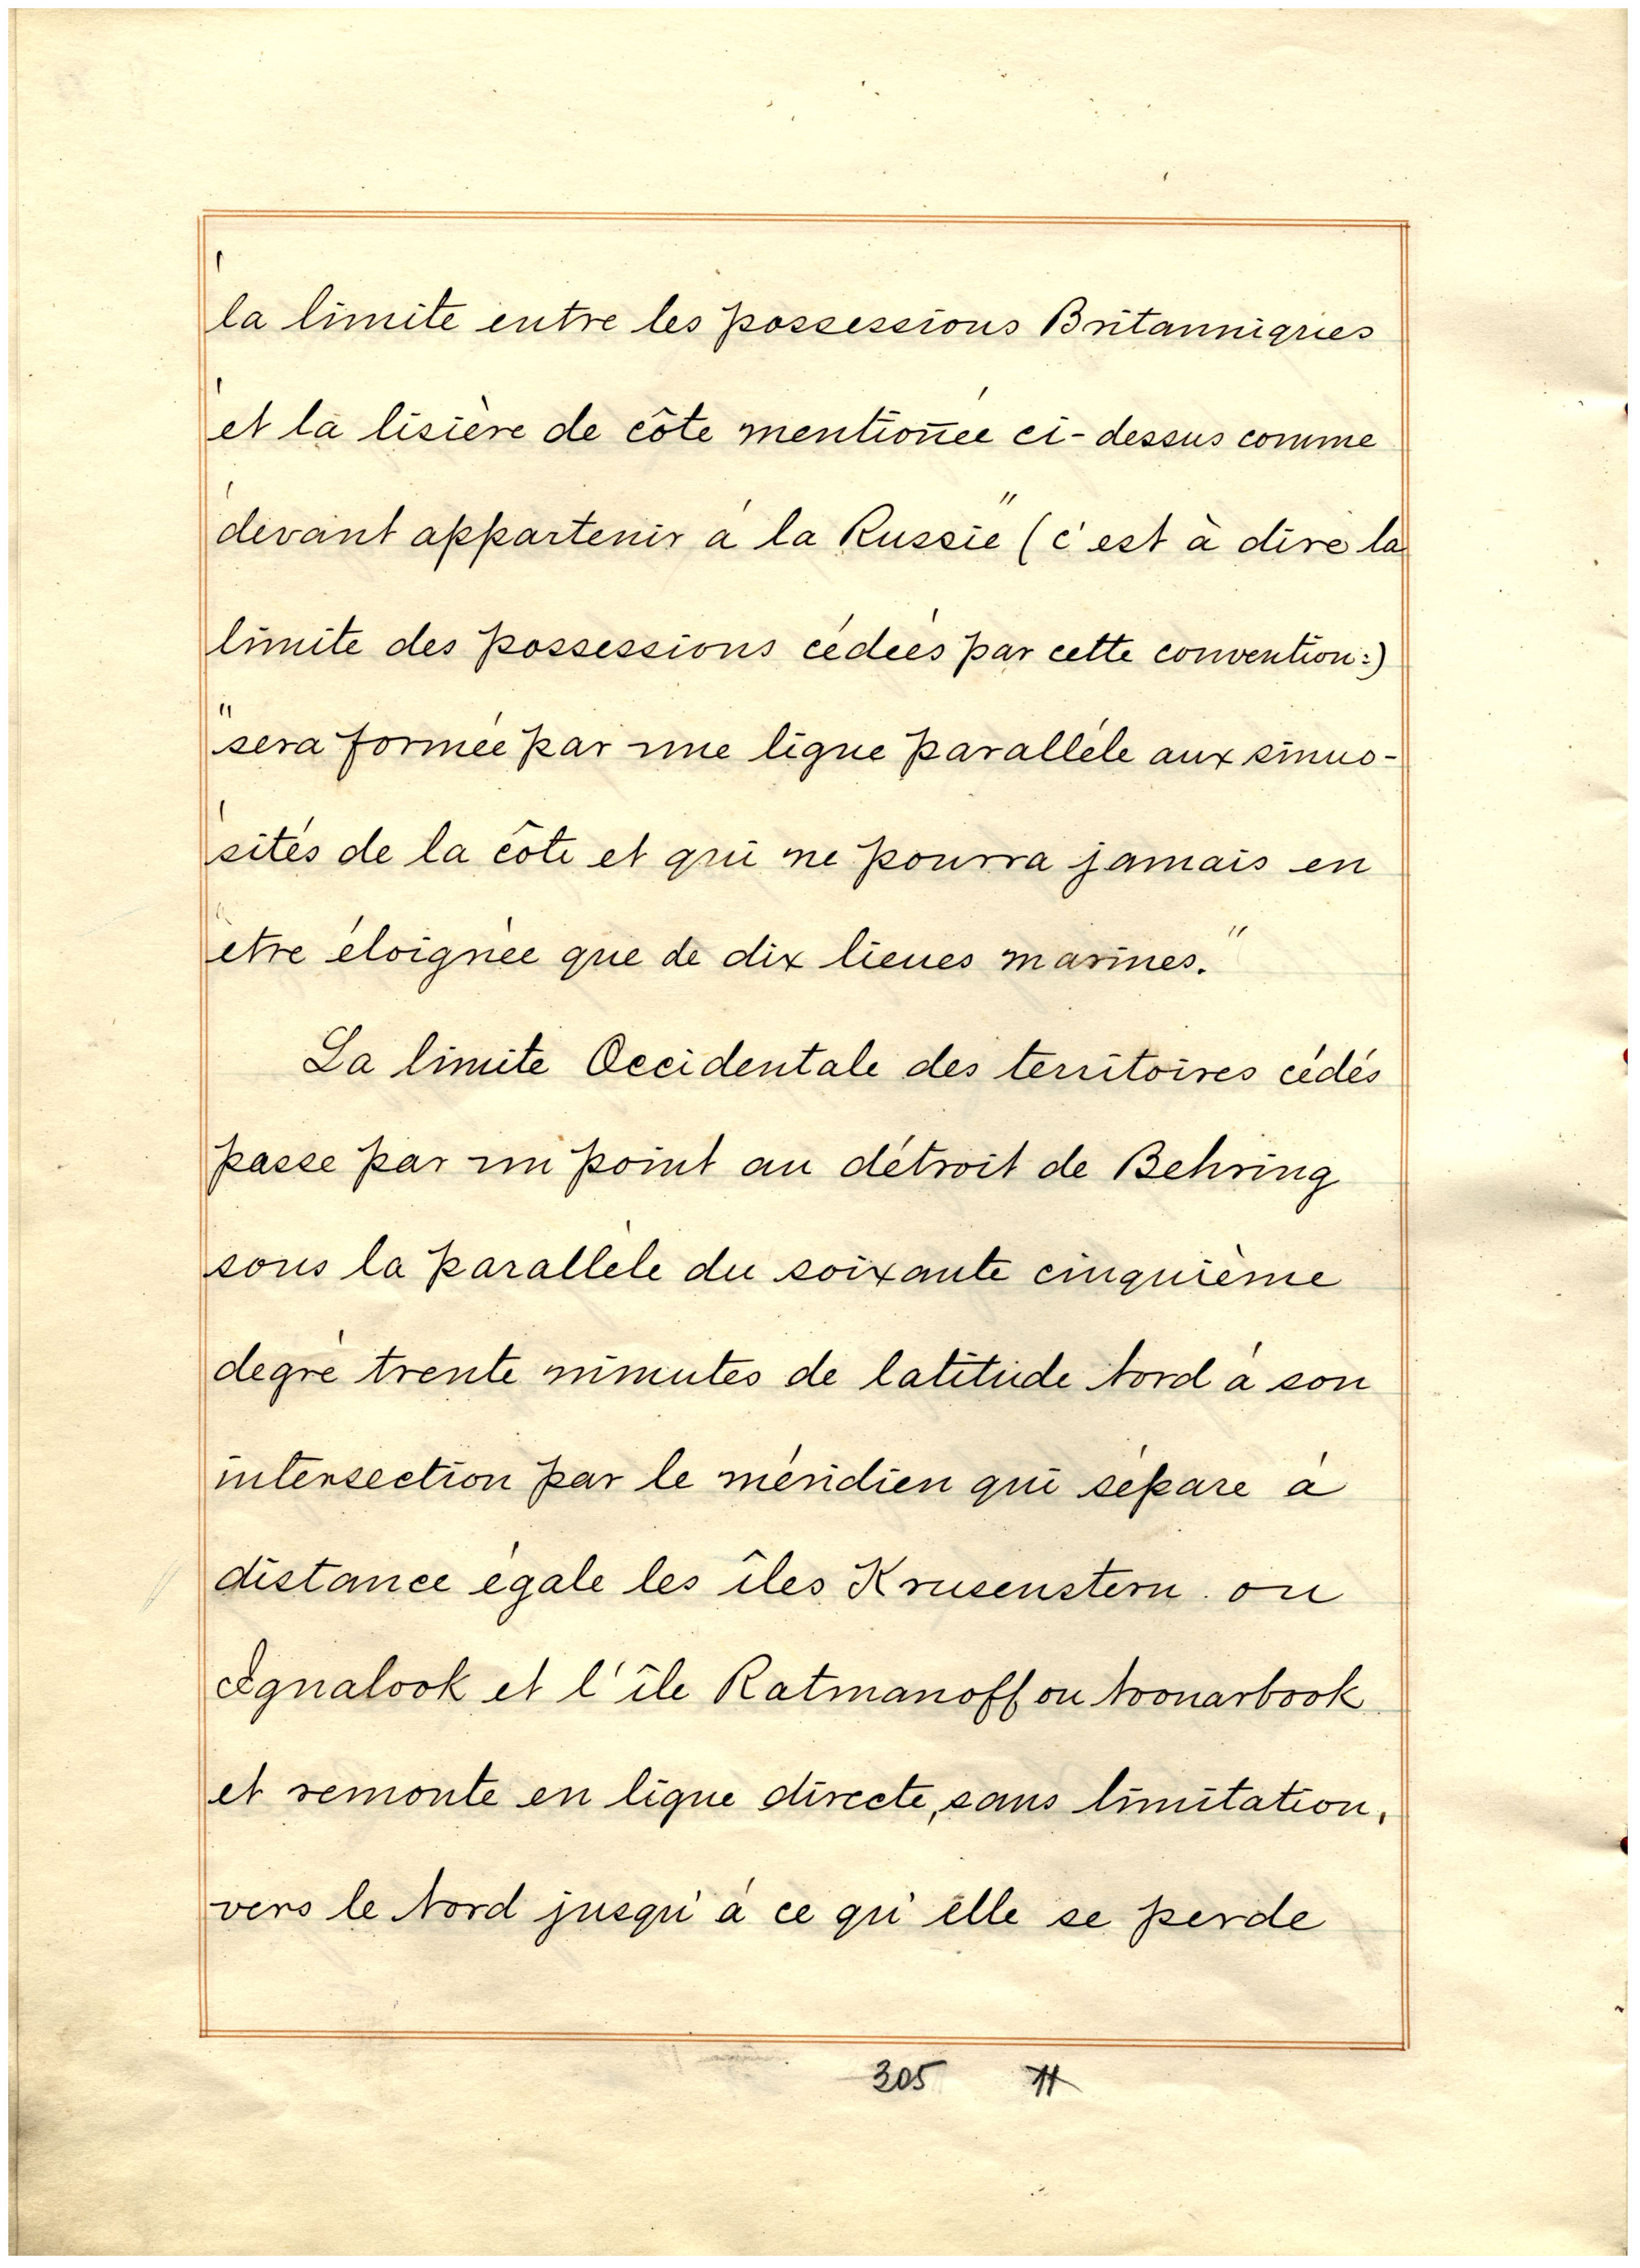 'la limite entre les possessions Britanniques
'et la lisière de côte mentioñée ci-dessus comme
'devant appartenir à la Russie" (c'est à dire la
limite des possessions cédées par cette convention:)
"sera formée par une ligne parallèle aux sinuo-
'sités de la côte et qui ne pourra jamais en
être éloignée que de dix lieues marines."
La limite Occidentale des territoires cédés
passe par un point au détroit de Behring
sous la parallèle du soixante cinquième
degré trente minutes de latitude Nord à son
intersection par le méridien qui sépare à
distance égale les îles Krusenstern ou
Ignalook et l'île Ratmanoff ou Noonarbook
et remonte en ligne directe, sans limitation,
vers le Nord jusqu'à ce qu'elle se perde
305